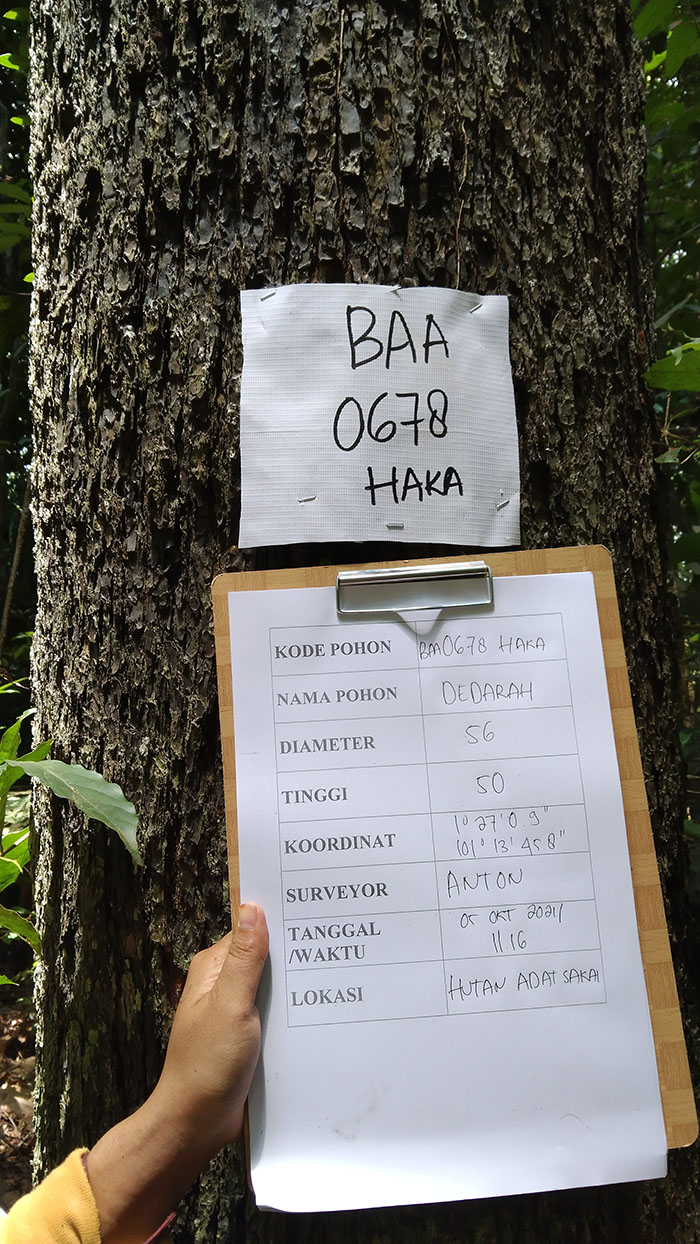 BAA
0678
HAKA
KODE POHON BAA0678 HAKA
NAMA POHON DEDARAH
DIAMETER 56
TINGGI 50
KOORDINAT 1° 27' 0.9"
101° 13' 45.8"
SURVEYOR ANTON
TANGGAL 05 OKT 2021/
/WAKTU 11 16
LOKASI HUTAN ADAT SAKAI